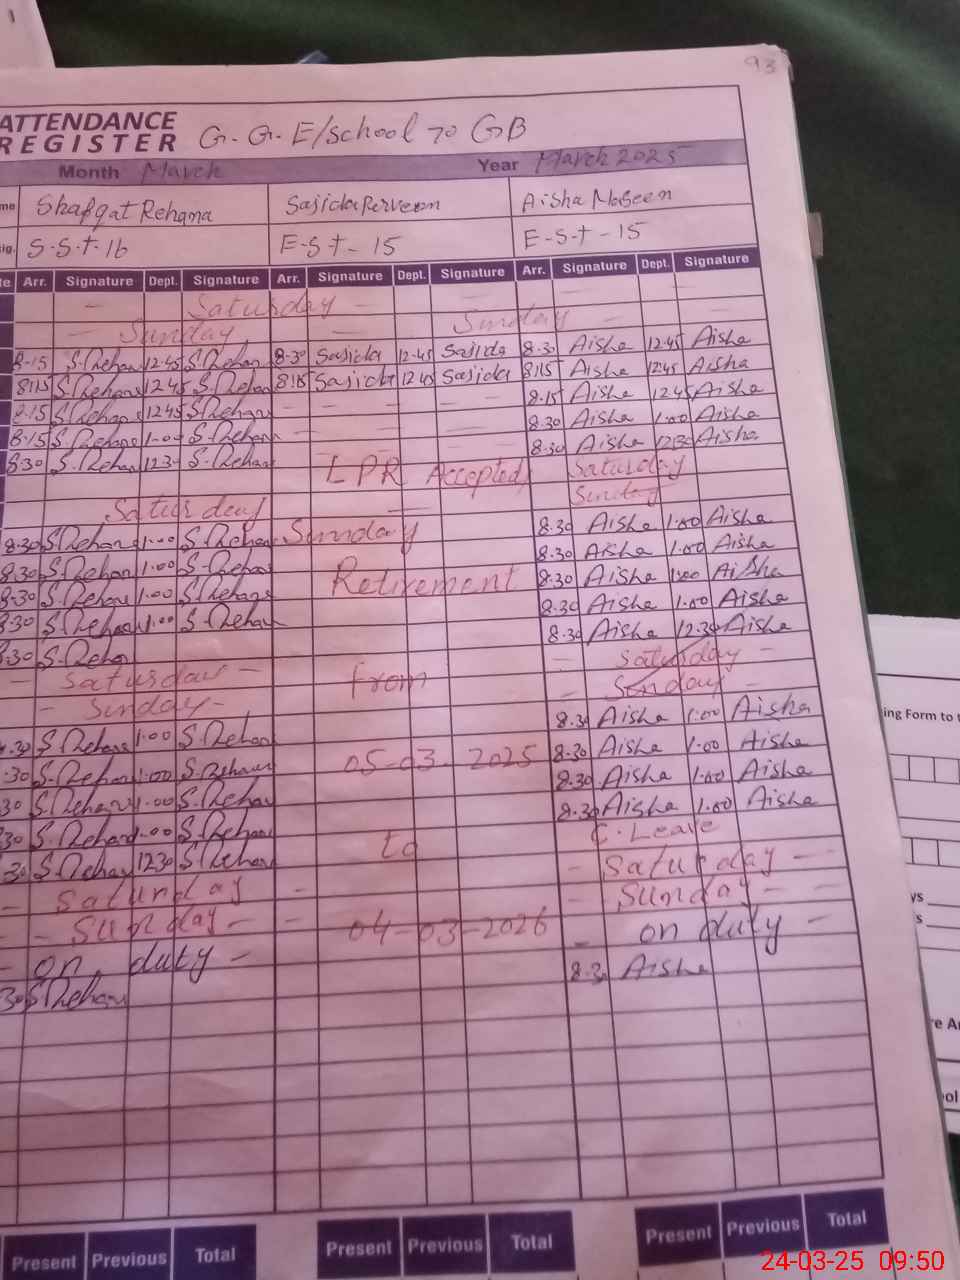 93
ATTENDANCE
REGISTER G.G.E/school 70 GB
Month March Year March 2025
me Shafqat Rehana Sajida Perveen Aisha Naseen
ig. S.S.t-16 E-S-t-15 E-S-t-15
te Arr. Signature Dept. Signature Arr. Signature Dept. Signature Arr. Signature Dept. Signature
- Saturday - -
- Sunday - Sunday -
8-15 S.Rehana 12.45 S.Rehana 8-30 Sajida 12-45 Sajida 8-30 Aisha 12.45 Aisha
8:15 S.Rehana 12.45 S.Rehana 8:15 Sajida 12.45 Sajida 8:15 Aisha 12.45 Aisha
8-15 S.Rehana 12.45 S.Rehana - - - - 8-15 Aisha 12.45 Aisha
8-15 S.Rehana 1.00 S.Rehana - - - - 8.30 Aisha 1.00 Aisha
8-30 S.Rehana 12.30 S.Rehana 8.30 Aisha 12.30 Aisha
LPR Accepted Saturday
Saturday - Sunday
Sunday 8.30 Aisha 1.00 Aisha
8.30 S.Rehana 1.00 S.Rehana 8.30 Aisha 1.00 Aisha
8.30 S.Rehana 1.00 S.Rehana Retirement 8.30 Aisha 1.00 Aisha
8.30 S.Rehana 1.00 S.Rehana 8.30 Aisha 1.00 Aisha
8.30 S.Rehana 1.00 S.Rehana 8.30 Aisha 12.30 Aisha
.30 S.Rehan - Saturday -
- Saturday - from - Sunday -
- Sunday - 8.30 Aisha 1.00 Aisha
.30 S.Rehana 1.00 S.Rehana 8.30 Aisha 1.00 Aisha
.30 S.Rehana 1.00 S.Rehana 05-03-2025 8.30 Aisha 1.00 Aisha
30 S.Rehana 1.00 S.Rehana 8.30 Aisha 1.00 Aisha
30 S.Rehana 1.00 S.Rehana C.Leave
30 S.Rehana 12.30 S.Rehana to - Saturday -
- Saturday - - Sunday -
- Sunday - 04-03-2026 - on duty -
- on duty - 8.30 Aisha
30 S.Rehana
Present Previous Total Present Previous Total Present Previous Total
ing Form to t
ys
s
re A
ol
24-03-25 09:50